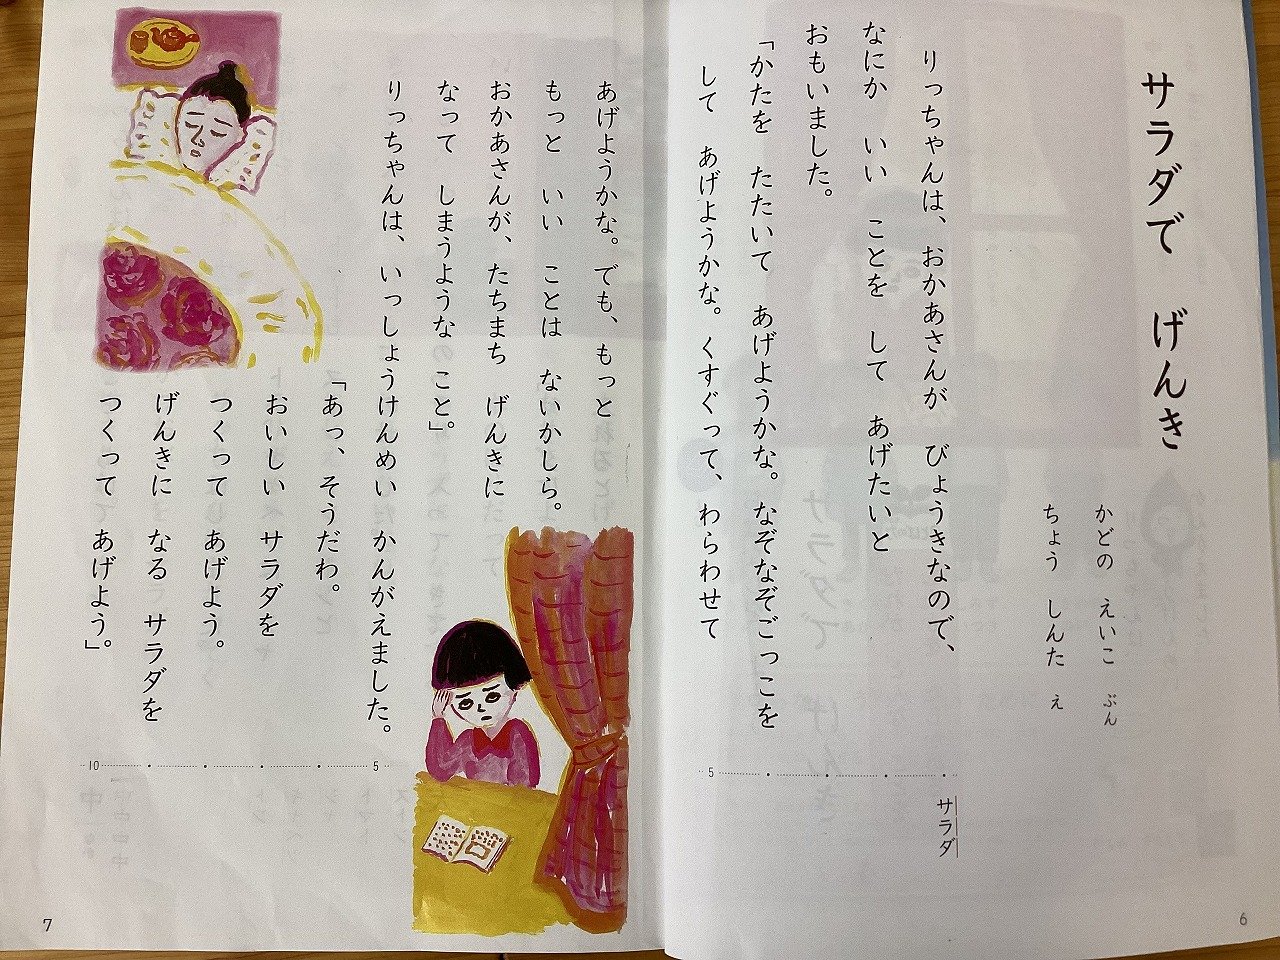 サラダで　げんき
かどの　えいこ　ぶん
ちょう　しんた　え
りっちゃんは、おかあさんが　びょうきなので、
なにか　いい　ことを　して　あげたいと
おもいました。
「かたを　たたいて　あげようかな。なぞなぞごっこを
して　あげようかな。くすぐって、わらわせて
サラダ
5
6
あげようかな。でも、もっと
もっと　いい　ことは　ないかしら。
おかあさんが、たちまち　げんきに
なって　しまうような　こと」。
りっちゃんは、いっしょうけんめい　かんがえました。
「あっ、そうだわ。
おいしい　サラダを
つくって　あげよう。
げんきに　なる　サラダを
つくって　あげよう。」
5
10
7